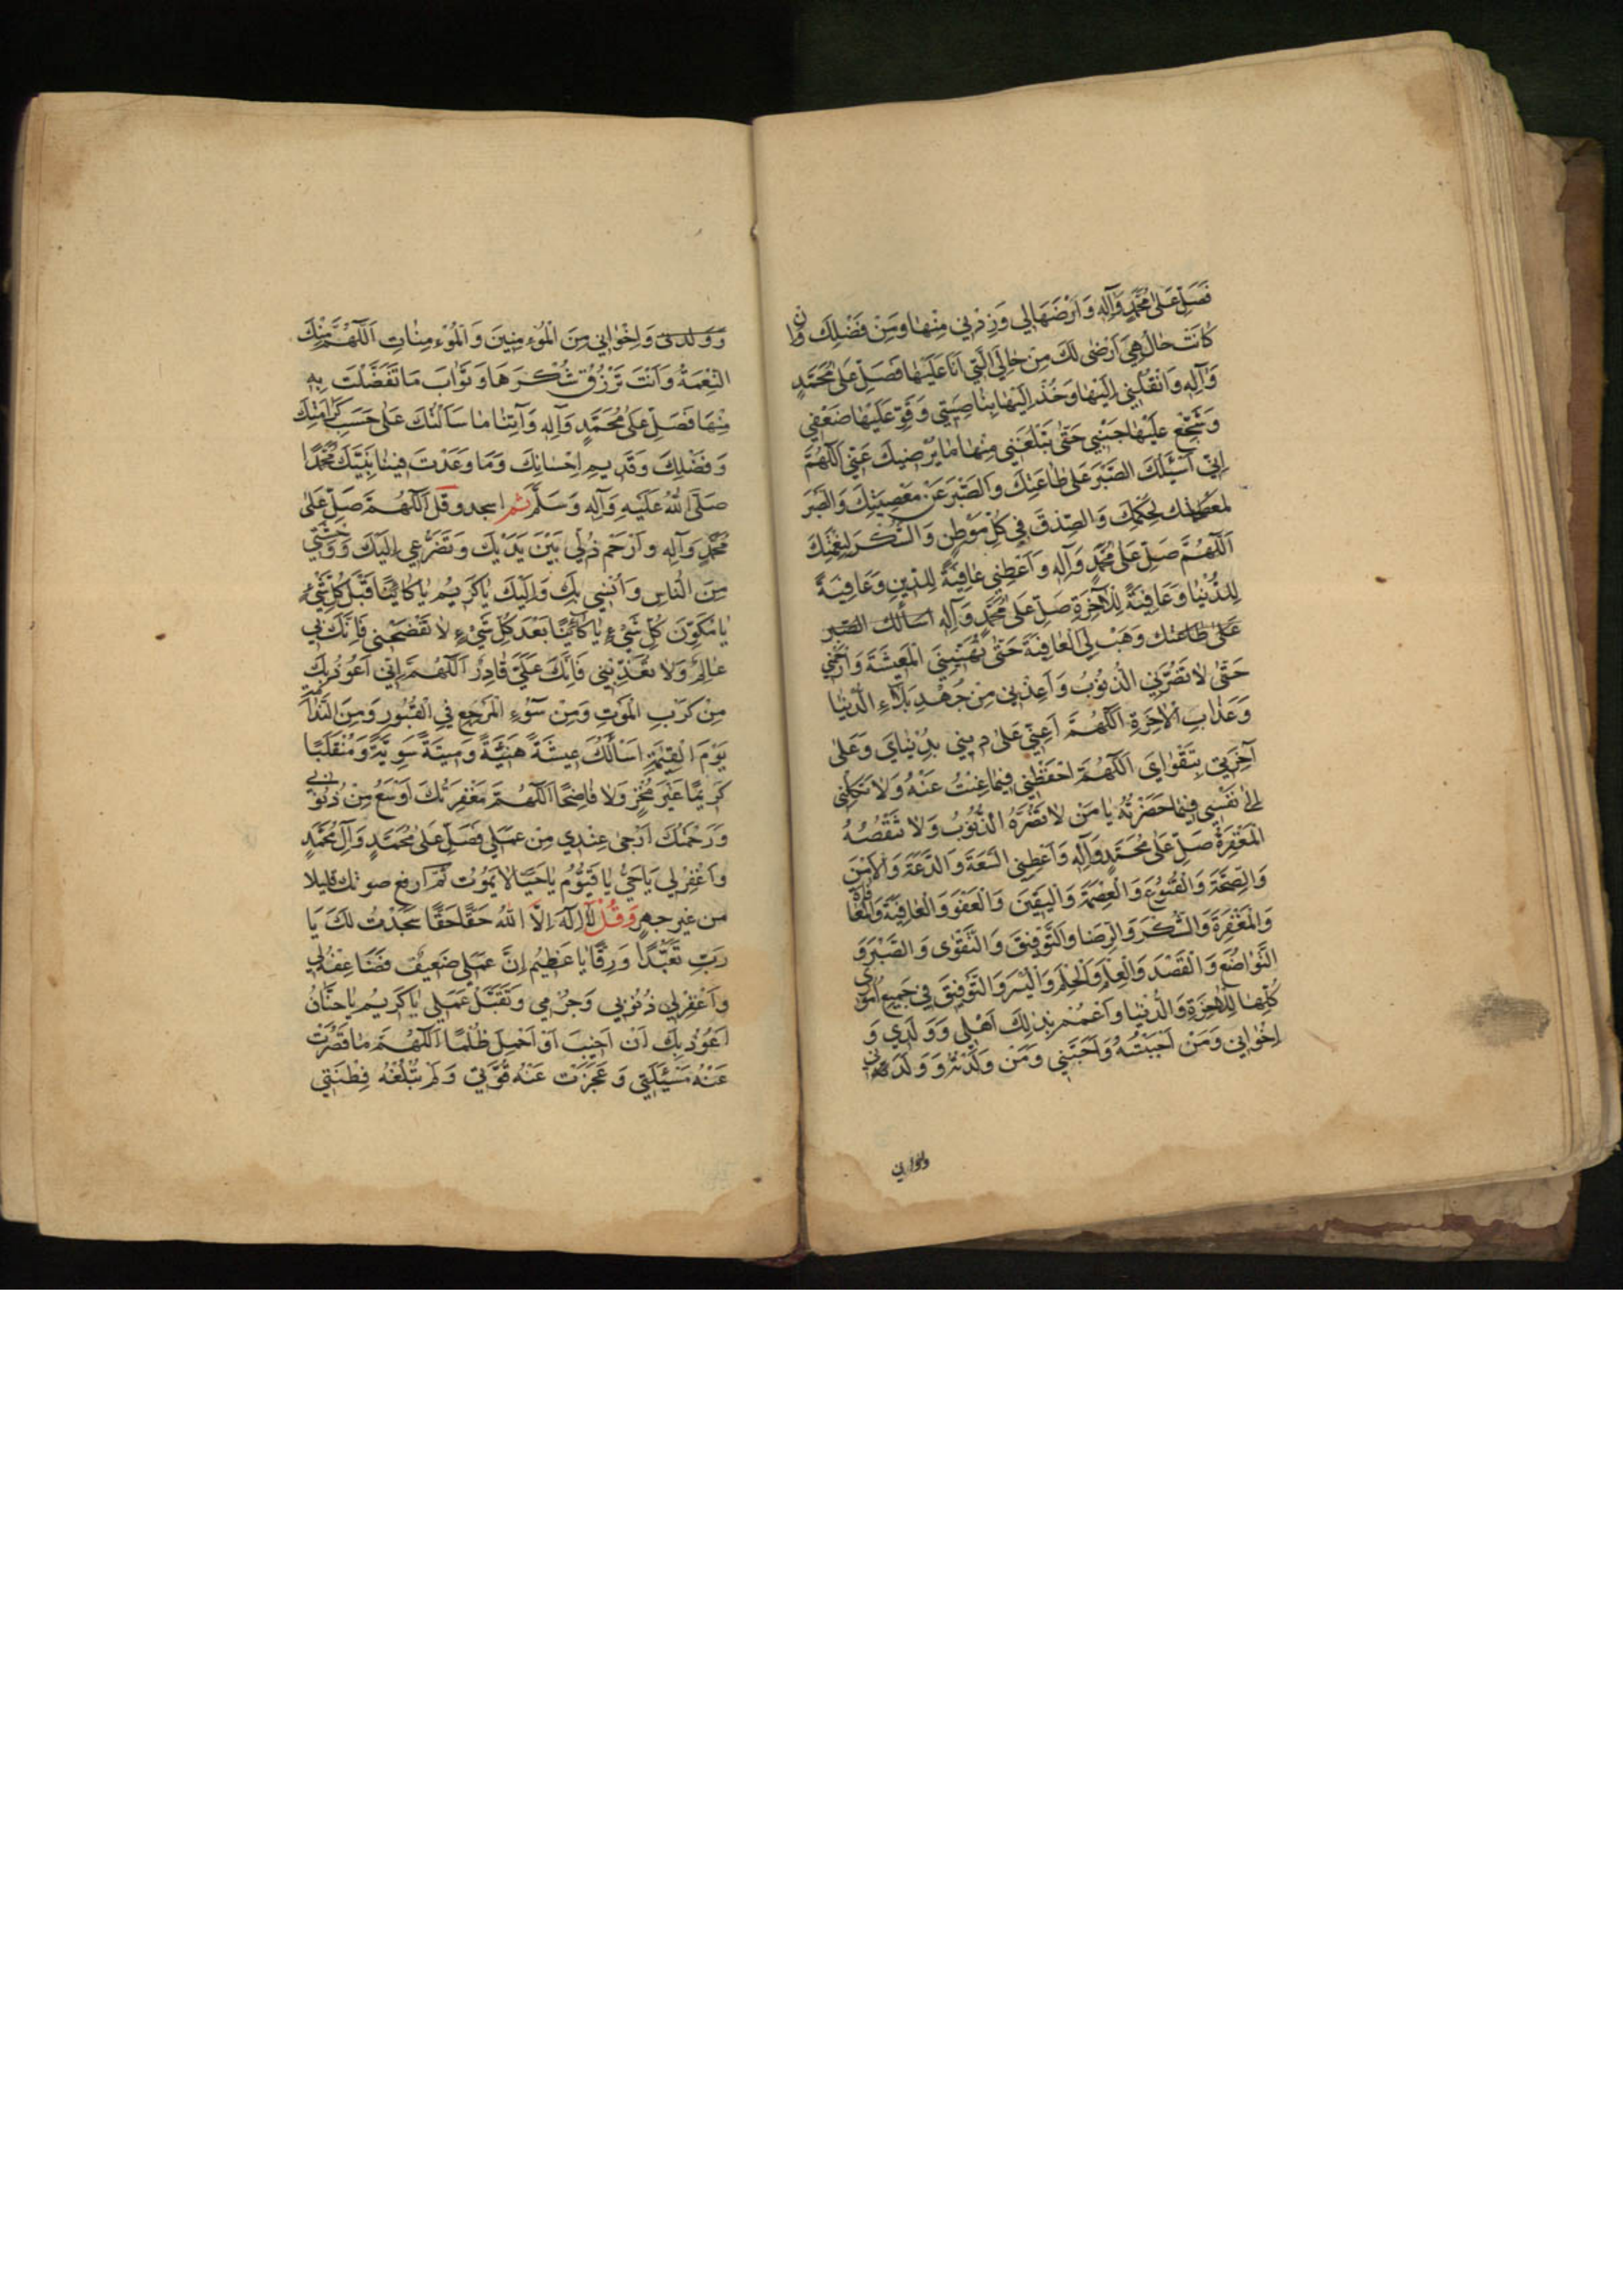 فَصَلِّ عَلى مُحَمَّدٍ وَآلِهِ وَارْضَهَا لِي وَزِدْنِي مِنْهَا وَمِنْ فَضْلِكَ وَاِنْ
كَانَتْ حَالٌ هِيَ اَرْضى لَكَ مِنْ حَالِي الَّتِي اَنَا عَلَيْهَا فَصَلِّ عَلى مُحَمَّدٍ
وَآلِهِ وَانْقُلْنِي اِلَيْهَا وَخُذْ اِلَيْهَا بِنَاصِيَتِي وَقَوِّ عَلَيْهَا ضَعْفِي
وَشَجِّعْ عَلَيْهَا جُبْنِي حَتّى تَبْلُغَنِي مِنْهَا مَا يُرْضِيكَ عَنِّي اَللّهُمَّ
اِنِّي اَسْئَلُكَ الصَّبْرَ عَلى طَاعَتِكَ وَالصَّبْرَ عَنْ مَعْصِيَتِكَ وَالصَّبْرَ
لِحُكْمِكَ وَالصِّدْقَ فِي كُلِّ مَوْطِنٍ وَالشُّكْرَ لِنِعْمَتِكَ
اَللّهُمَّ صَلِّ عَلى مُحَمَّدٍ وَآلِهِ وَاَعْطِنِي عَافِيَةً لِلدِّينِ وَعَافِيَةً
لِلدُّنْيَا وَعَافِيَةً لِلْآخِرَةِ صَلِّ عَلى مُحَمَّدٍ وَآلِهِ اسألك الصبر
عَلى طَاعَتِك وَهَبْ لِيَ الْعَافِيَةَ حَتّى تُهَنِّيَنِي الْمَعِيشَةَ وَارْحَمْنِي
حَتّى لَا تَضُرَّنِي الذُّنُوبُ وَاَعِذْنِي مِنْ جُهْدِ بَلَاءِ الدُّنْيَا
وَعَذَابِ الْاخِرَةِ اَللّهُمَّ اَعِنِّي عَلى دِينِي بِدُنْيَايَ وَعَلى
آخِرَتِي بِتَقْوَايَ اَللّهُمَّ احْفَظْنِي فِيمَا غِبْتُ عَنْهُ وَلَا تَكِلْنِي
اِلى نَفْسِي فِيمَا حَضَرْتُهُ يَا مَنْ لَا تَضُرُّهُ الذُّنُوبُ وَلَا تَنْقُصُهُ
الْمَغْفِرَةُ صَلِّ عَلى مُحَمَّدٍ وَآلِهِ وَاَعْطِنِي السَّعَةَ وَالدَّعَةَ وَالْاَمْنَ
وَالصِّحَّةَ وَالْقُنُوعَ وَالْعِصْمَةَ وَالْيَقِينَ وَالْعَفْوَ وَالْعَافِيَةَ وَالْمُعَافَاةَ
وَالْمَغْفِرَةَ وَالشُّكْرَ وَالرِّضَا وَالتَّوْفِيقَ وَالتَّقْوى وَالصَّبْرَ وَ
التَّوَاضُعَ وَالْقَصْدَ وَالْعِلْمَ وَالْحِلْمَ وَالْيُسْرَ وَالتَّوْفِيقَ فِي جَمِيعِ اُمُورِي
كُلِّهَا لِلْاخِرَةِ وَالدُّنْيَا وَاعْمُمْ بِذلِكَ اَهْلِي وَوَلَدِي وَ
اِخْوَانِي وَمَنْ اَحْبَبْتُهُ وَاَحَبَّنِي وَمَنْ وَلَدْتُهُ وَوَلَدَنِي
واخواني
وَوَلَدِي وَاِخْوَانِي مِنَ الْمُؤْمِنِينَ وَالْمُؤْمِنَاتِ اَللّهُمَّ مِنْكَ
النِّعْمَةُ وَاَنْتَ تَرْزُقُ شُكْرَهَا وَثَوَابَ مَا تَفَضَّلْتَ بِهِ
مِنْهَا فَصَلِّ عَلى مُحَمَّدٍ وَآلِهِ وَآتِنَا مَا سَاَلْتُكَ عَلى حَسَبِ كَرَامَتِكَ
وَفَضْلِكَ وَقَدِيمِ اِحْسَانِكَ وَمَا وَعَدْتَ فِينَا نَبِيَّكَ مُحَمَّدًا
صَلَّى اللهُ عَلَيْهِ وَآلِهِ وَسَلَّمَ ثم اسجد وقل اَللّهُمَّ صَلِّ عَلى
مُحَمَّدٍ وَآلِهِ وَارْحَمْ ذُلِّي بَيْنَ يَدَيْكَ وَتَضَرُّعِي اِلَيْكَ وَوَحْشَتِي
مِنَ النَّاسِ وَاُنْسِي بِكَ وَاِلَيْكَ يَا كَرِيمُ يَا كَائِنًا قَبْلَ كُلِّ شَيْءٍ
يَا مُكَوِّنَ كُلِّ شَيْءٍ يَا كَائِنًا بَعْدَ كُلِّ شَيْءٍ لَا تَفْضَحْنِي فَاِنَّكَ بِي
عَالِمٌ وَلَا تُعَذِّبْنِي فَاِنَّكَ عَلَيَّ قَادِرٌ اَللّهُمَّ اِنِّي اَعُوذُ بِكَ
مِنْ كَرْبِ الْمَوْتِ وَمِنْ سُوْءِ الْمَرْجِعِ فِي الْقُبُورِ وَمِنَ النَّدَامَةِ
يَوْمَ الْقِيمَةِ اَسْأَلُكَ عِيشَةً هَنِيئَةً وَمِيتَةً سَوِيَّةً وَمُنْقَلَبًا
كَرِيمًا غَيْرَ مُخْزٍ وَلَا فَاضِحًا اَللّهُمَّ مَغْفِرَتُكَ اَوْسَعُ مِنْ ذُنُوبِي
وَرَحْمَتُكَ اَرْجى عِنْدِي مِنْ عَمَلِي فَصَلِّ عَلى مُحَمَّدٍ وَآلِ مُحَمَّدٍ
وَاغْفِرْ لِي يَا حَيُّ يَا قَيُّومُ يَا حَيًّا لَا يَمُوتُ ثُمَّ ارفع صوتك قليلا
من غير جهرٍ وَقُلْ لَا اِلَهَ اِلَّا اللهُ حَقًّا حَقًّا سَجَدْتُ لَكَ يَا
رَبِّ تَعَبُّدًا وَرِقًّا يَا عَظِيمُ اِنَّ عَمَلِي ضَعِيفٌ فَضَاعِفْهُ لِي
وَاغْفِرْ لِي ذُنُوبِي وَجُرْمِي وَتَقَبَّلْ عَمَلِي يَا كَرِيمُ يَا حَنَّانُ
اَعُوذُ بِكَ اَنْ اَخِيبَ اَوْ اَحْمِلَ ظُلْمًا اَللّهُمَّ مَا قَصُرَتْ
عَنْهُ مَسْئَلَتِي وَعَجَزَتْ عَنْهُ قُوَّتِي وَلَمْ تَبْلُغْهُ فِطْنَتِي